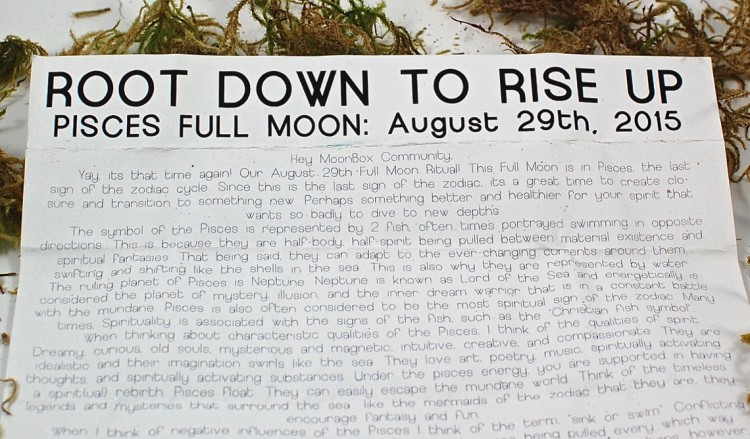 ROOT DOWN TO RISE UP
PISCES FULL MOON: August 29th, 2015
Hey MoonBox Community,
Yay, its that time again! Our August 29th Full Moon Ritual! This Full Moon is in Pisces, the last
sign of the zodiac cycle. Since this is the last sign of the zodiac, its a great time to create clo-
sure and transition to something new. Perhaps something better and healthier for your spirit that
wants so badly to dive to new depths.
The symbol of the Pisces is represented by 2 fish, often times portrayed swimming in opposite
directions. This is because they are half-body, half-spirit being pulled between material existence and
spiritual fantasies. That being said, they can adapt to the ever-changing currents around them,
swifting and shifting like the shells in the sea. This is also why they are represented by water.
The ruling planet of Pisces is Neptune. Neptune is known as Lord of the Sea and energetically is
considered the planet of mystery, illusion, and the inner dream warrior that is in a constant battle
with the mundane. Pisces is also often considered to be the most spiritual sign of the zodiac. Many
times, Spirituality is associated with the signs of the fish, such as the "Christian fish symbol"
When thinking about characteristic qualities of the Pisces, I think of the qualities of spirit.
Dreamy, curious, old souls, mysterious and magnetic, intuitive, creative, and compassionate. They are
idealistic and their imagination swirls like the sea. They love art, poetry, music, spiritually activating
thoughts, and spiritually activating substances. Under the pisces energy, you are supported in having
a spirit(ual) rebirth. Pisces float. They can easily escape the mundane world. Think of the timeless
legends and mysteries that surround the sea, like the mermaids of the zodiac that they are, they
encourage fantasy and fun.
When I think of negative influences of the Pisces I think of the term, "sink or swim". Conflicting
being pulled every which way
however